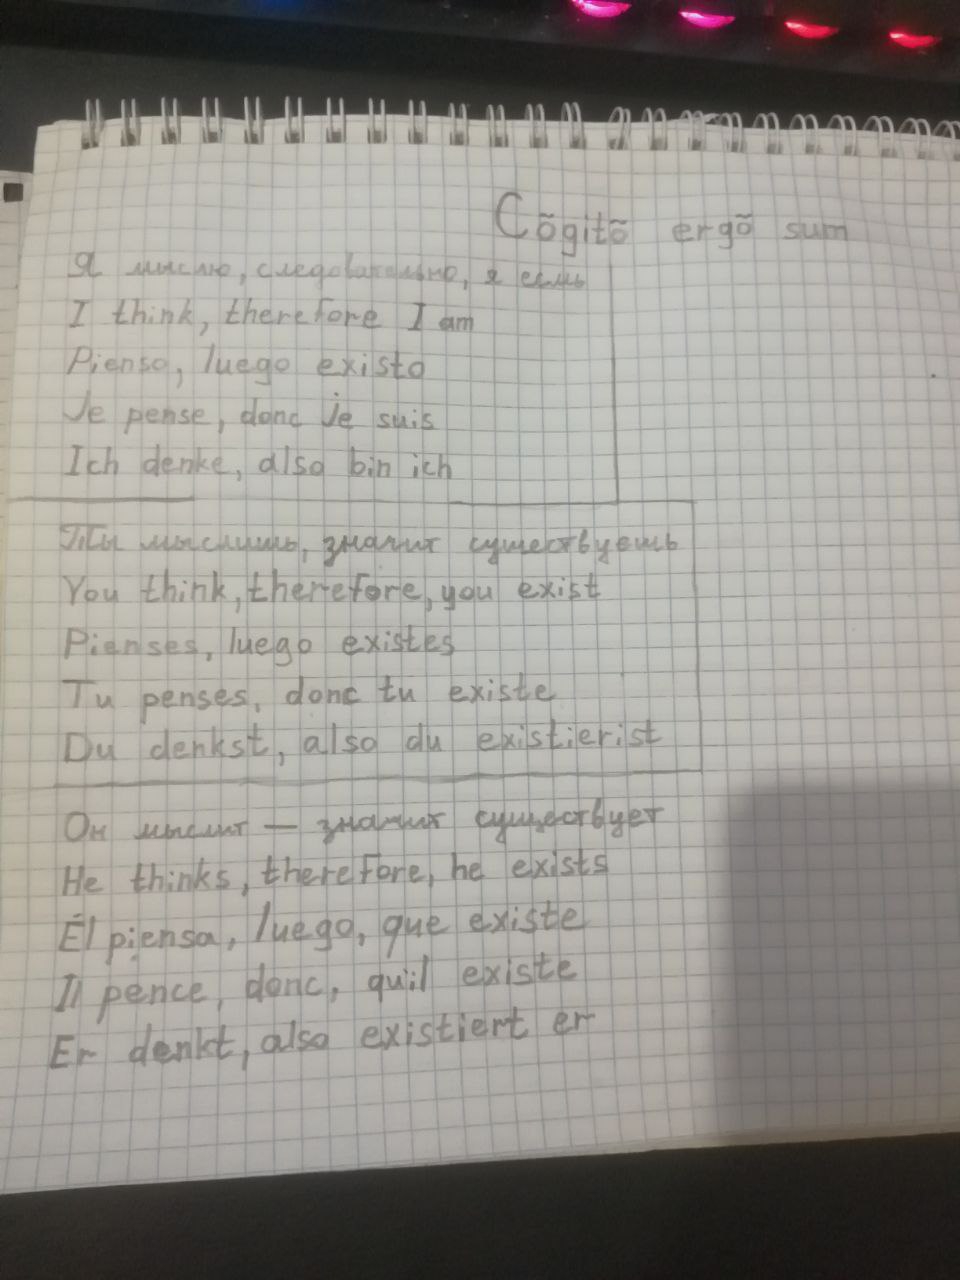 Cõgitõ ergõ sum
Я мыслю, следовательно, я есмь
I think, therefore I am
Pienso, luego existo
Je pense, donc je suis
Ich denke, also bin ich
Ты мыслишь, значит существуешь
You think, therefore, you exist
Pienses, luego existes
Tu penses, donc tu existe
Du denkst, also du existierist
Он мыслит — значит существует
He thinks, therefore, he exists
Él piensa, luego, que existe
Il pence, donc, qu'il existe
Er denkt, also existiert er